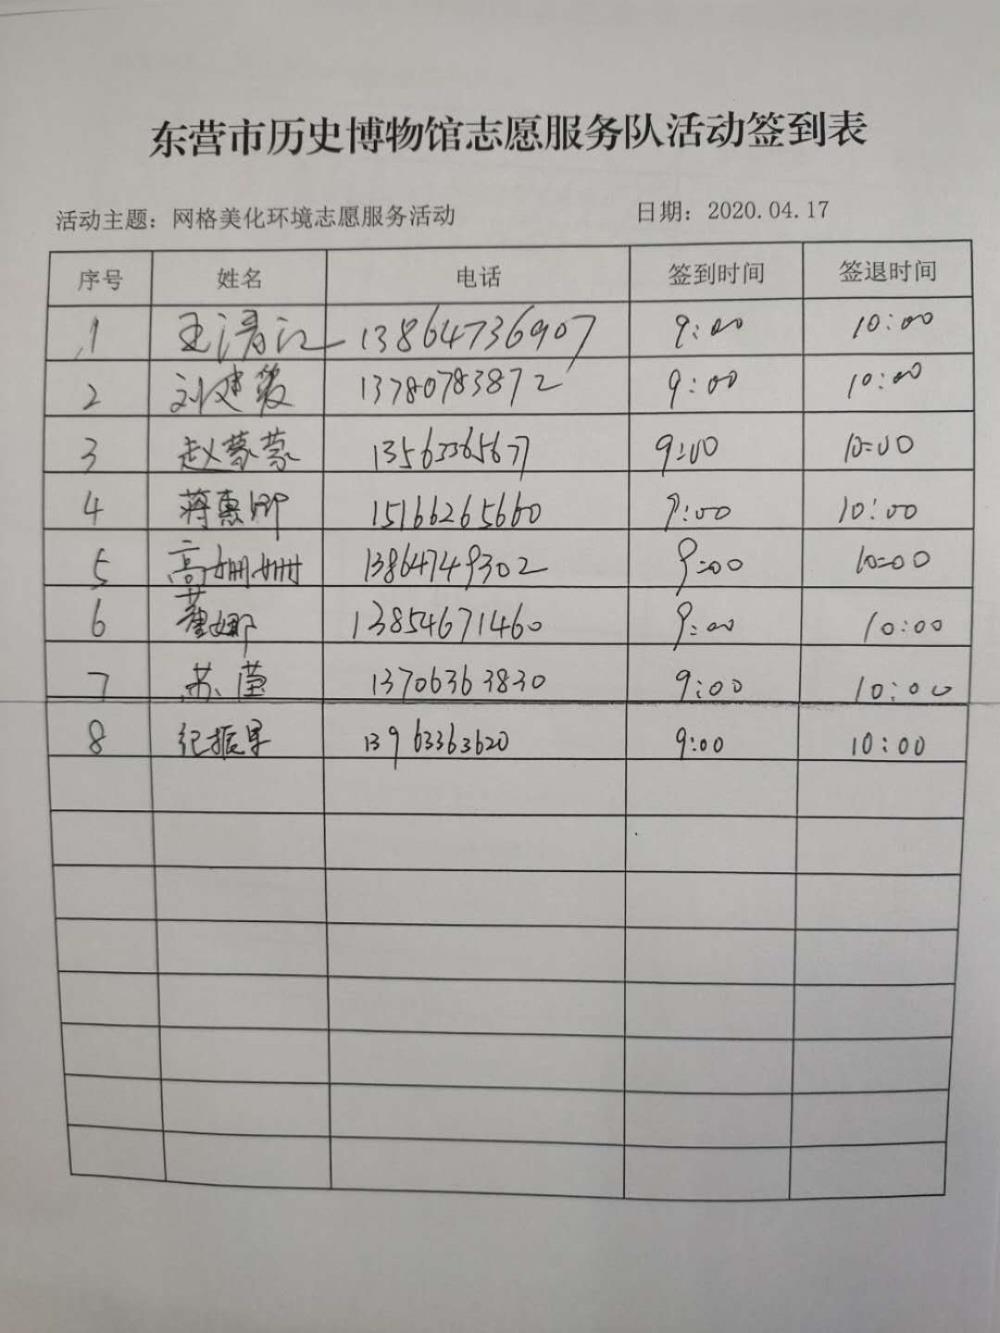 东营市历史博物馆志愿服务队活动签到表
活动主题：网格美化环境志愿服务活动 日期：2020.04.17
序号 姓名 电话 签到时间 签退时间
1 王清江 13864736907 9:00 10:00
2 13780783872 9:00 10:00
3 赵蒙蒙 13563365677 9:00 10:00
4 蒋惠卿 15166265660 9:00 10:00
5 高姗姗 13864749302 9:00 10:00
6 董娜 13854671460 9:00 10:00
7 苏莹 13706363830 9:00 10:00
8 13963363620 9:00 10:00